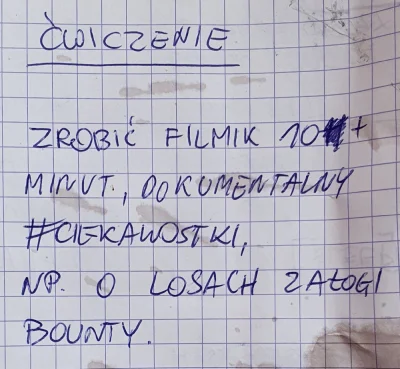 ĆWICZENIE
ZROBIĆ FILMIK 10+
MINUT., DOKUMENTALNY
#CIEKAWOSTKI,
NP. O LOSACH ZAŁOGI
BOUNTY.